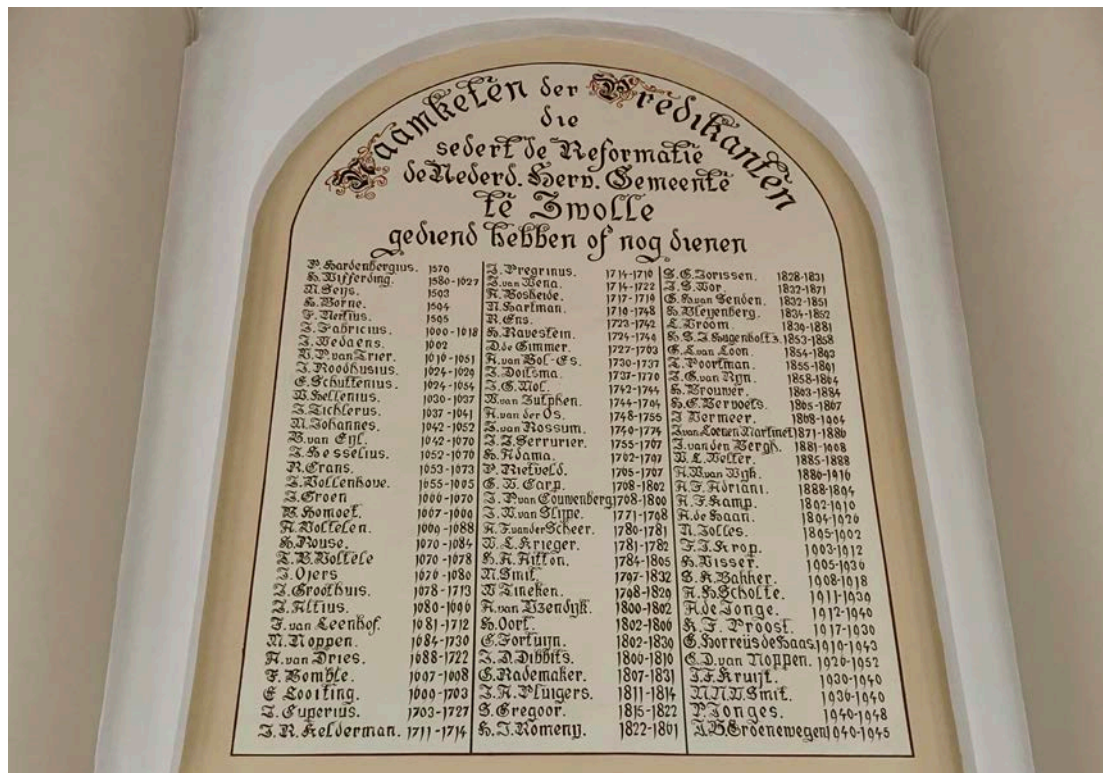 Naamketen der Predikanten
die
sedert de Reformatie
de Nederd. Herv. Gemeente
te Zwolle
gediend hebben of nog dienen
P. Hardenbergius. 1579
H. Wijferding. 1580-1627
M. Seijs. 1593
H. Borne. 1594
F. Nertius. 1595
J. Fabricius. 1600-1618
J. Wedaens. 1602
V.P. van Trier. 1616-1651
J. Roodhusius. 1624-1629
E. Schuttenius. 1624-1654
W. Hellenius. 1630-1637
J. Tichlerus. 1637-1641
M. Johannes. 1642-1652
B. van Eijl. 1642-1670
J. Hesselius. 1652-1670
R. Crans. 1653-1673
J. Vollenhove. 1655-1665
J. Groen 1666-1670
W. Homoet. 1667-1669
A. Voltelen. 1669-1688
H. Rouse. 1670-1684
T.B. Voltele 1670-1678
J. Ojers 1676-1680
J. Groothuis. 1678-1713
J. Altius. 1680-1696
F. van Leenhof. 1681-1712
M. Noppen. 1684-1730
A. van Dries. 1688-1722
F. Bomble. 1697-1698
E Looiting. 1699-1703
J. Cuperius. 1703-1727
J.R. Kelderman. 1711-1714
J. Pregrinus. 1714-1716
J. van Wena. 1714-1722
A. Bosheide. 1717-1719
N. Hartman. 1719-1748
R. Ens. 1723-1742
H. Ravestein. 1724-1749
D. de Gimmer. 1727-1763
A. van Bol-Es. 1730-1737
J. Doitsma. 1737-1770
J.G. Mol. 1742-1744
W. van Zutphen. 1744-1794
A. van der Os. 1748-1755
J. van Rossum. 1749-1774
J.J. Serrurier. 1755-1767
H. Adama. 1762-1797
P. Rietveld. 1765-1767
G.W. Carp. 1768-1802
J.P. van Couwenberg 1768-1800
J.W. van Slype. 1771-1798
A.F. vander Scheer. 1780-1781
W.L. Krieger. 1781-1782
H.A. Aitton. 1784-1805
M. Smit. 1797-1832
W Tineken. 1798-1829
A. van IJzendijk. 1800-1802
H. Oort. 1802-1806
C. Fortuijn. 1802-1830
J.D. Dibbits. 1806-1810
C. Rademaker. 1807-1831
J.A. Pluigers. 1811-1814
S. Gregoor. 1815-1822
H.J. Romeny. 1822-1861
S.G. Jorissen. 1828-1831
J.S. Wor. 1832-1871
G.H. van Senden. 1832-1851
H. Bleyenberg. 1834-1852
L. Vroom. 1839-1881
H.S.J. Hugenholtz. 1853-1858
G.L. van Loon. 1854-1893
T. Poortman. 1855-1861
J.G. van Ryn. 1858-1864
H. Brouwer. 1863-1884
H.C. Vervoets. 1865-1867
J Vermeer. 1868-1904
J. van Loenen Martinet 1871-1886
J. van den Bergh. 1881-1908
W.L. Welter. 1885-1888
A.W. van Wijk. 1886-1916
A.F. Adriani. 1888-1894
A.F. Kamp. 1892-1910
A. de Haan. 1894-1926
N. Jolles. 1895-1902
F.J. Krop. 1903-1912
H. Visser. 1905-1936
S.K. Bakker. 1908-1918
A.H. Scholte. 1911-1939
A. de Jonge. 1912-1940
K.F. Proost. 1917-1930
G. Horreüs de Haas. 1919-1943
C.D. van Noppen. 1926-1952
J.F. Kruijt. 1930-1940
M.N.W. Smit. 1936-1940
P. Jonges. 1940-1948
A.B. Groenewegen 1940-1945